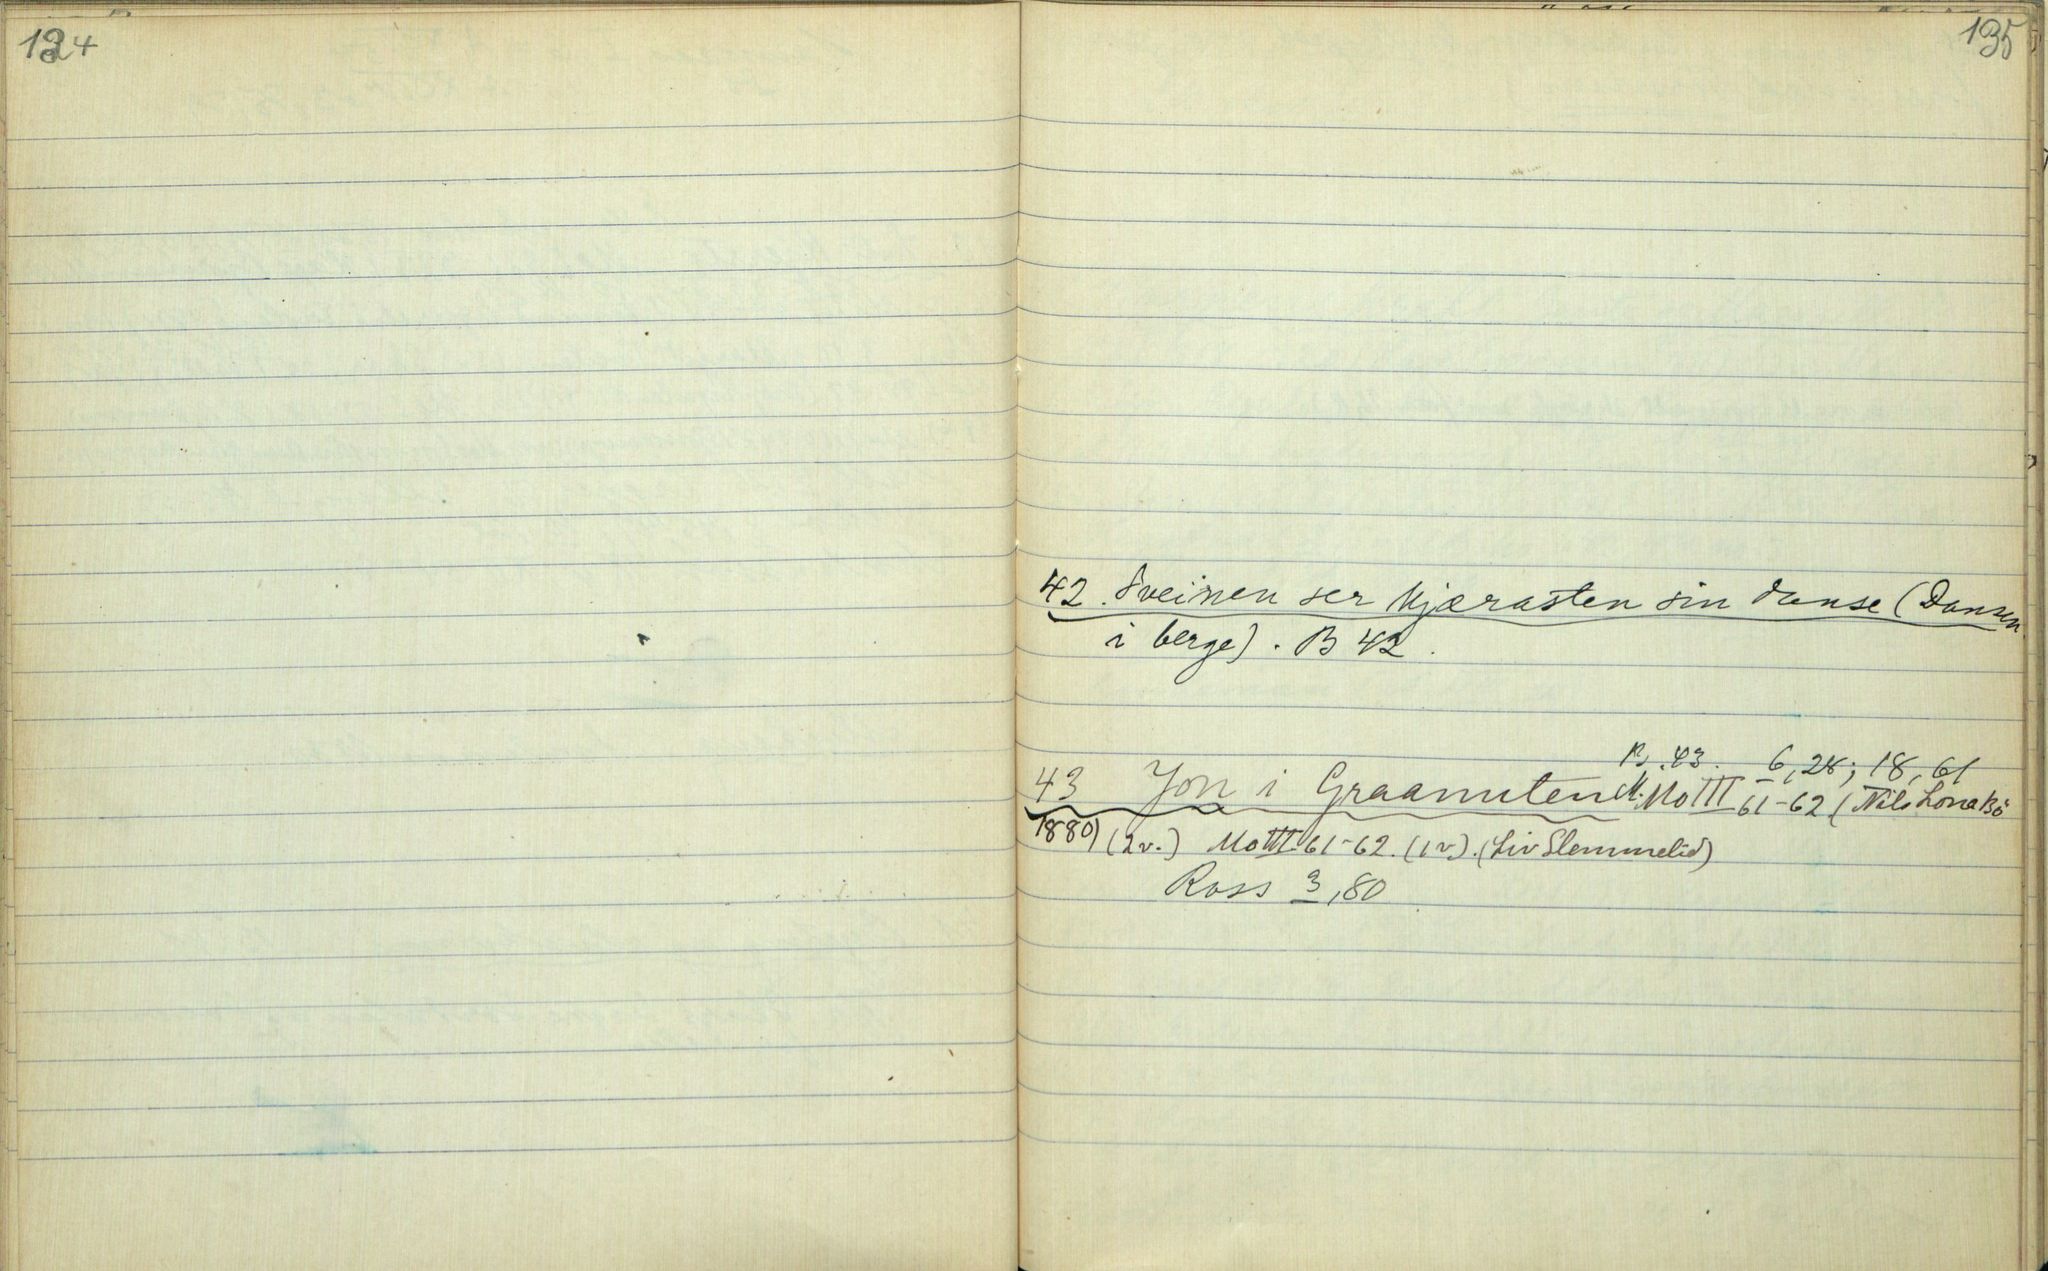 134
135
42. Sveinen ser kjærasten sin danse (Dansen
i berge). B 42.
B. 43. 6, 28; 18, 61
43 Jon i Graanuten M. Mo III 61-62 (Nils Lona Bö
1880) (2v.) Mo III 61-62. (1v). (Liv Slemmelid)
Ross 3, 80